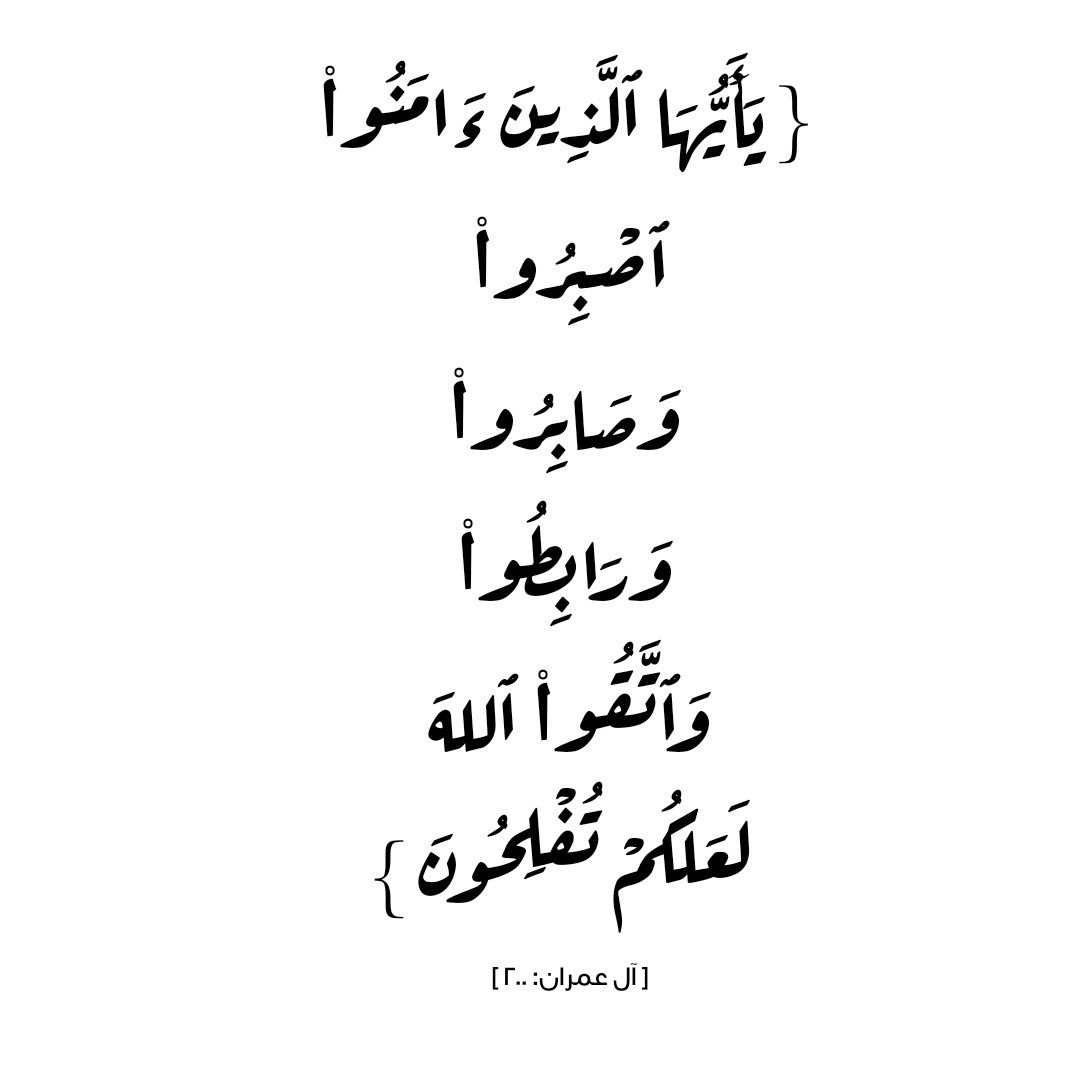 { يَٰٓأَيُّهَا ٱلَّذِينَ ءَامَنُوا۟
ٱصۡبِرُوا۟
وَصَابِرُوا۟
وَرَابِطُوا۟
وَٱتَّقُوا۟ ٱللهَ
لَعَلكُمۡ تُفۡلِحُونَ }
[ آل عمران: ٢٠٠ ]